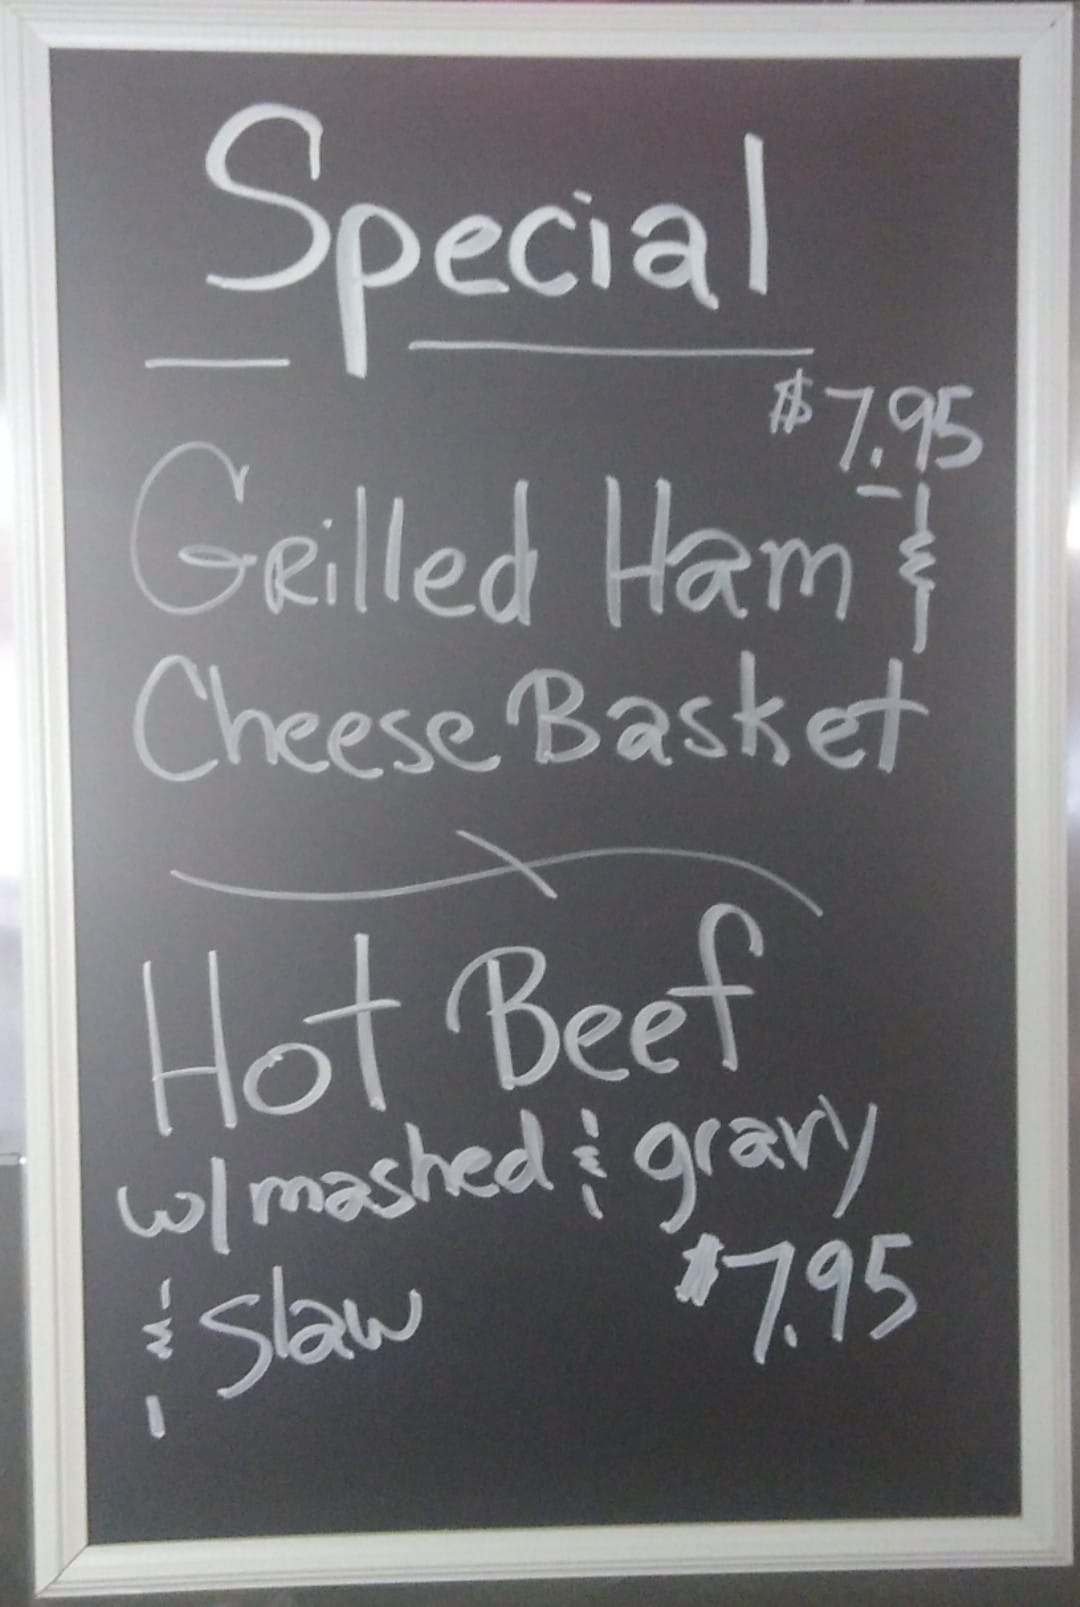 Special
$7.95
Grilled Ham &
Cheese Basket
Hot Beef
w/ mashed & gravy
& Slaw $7.95